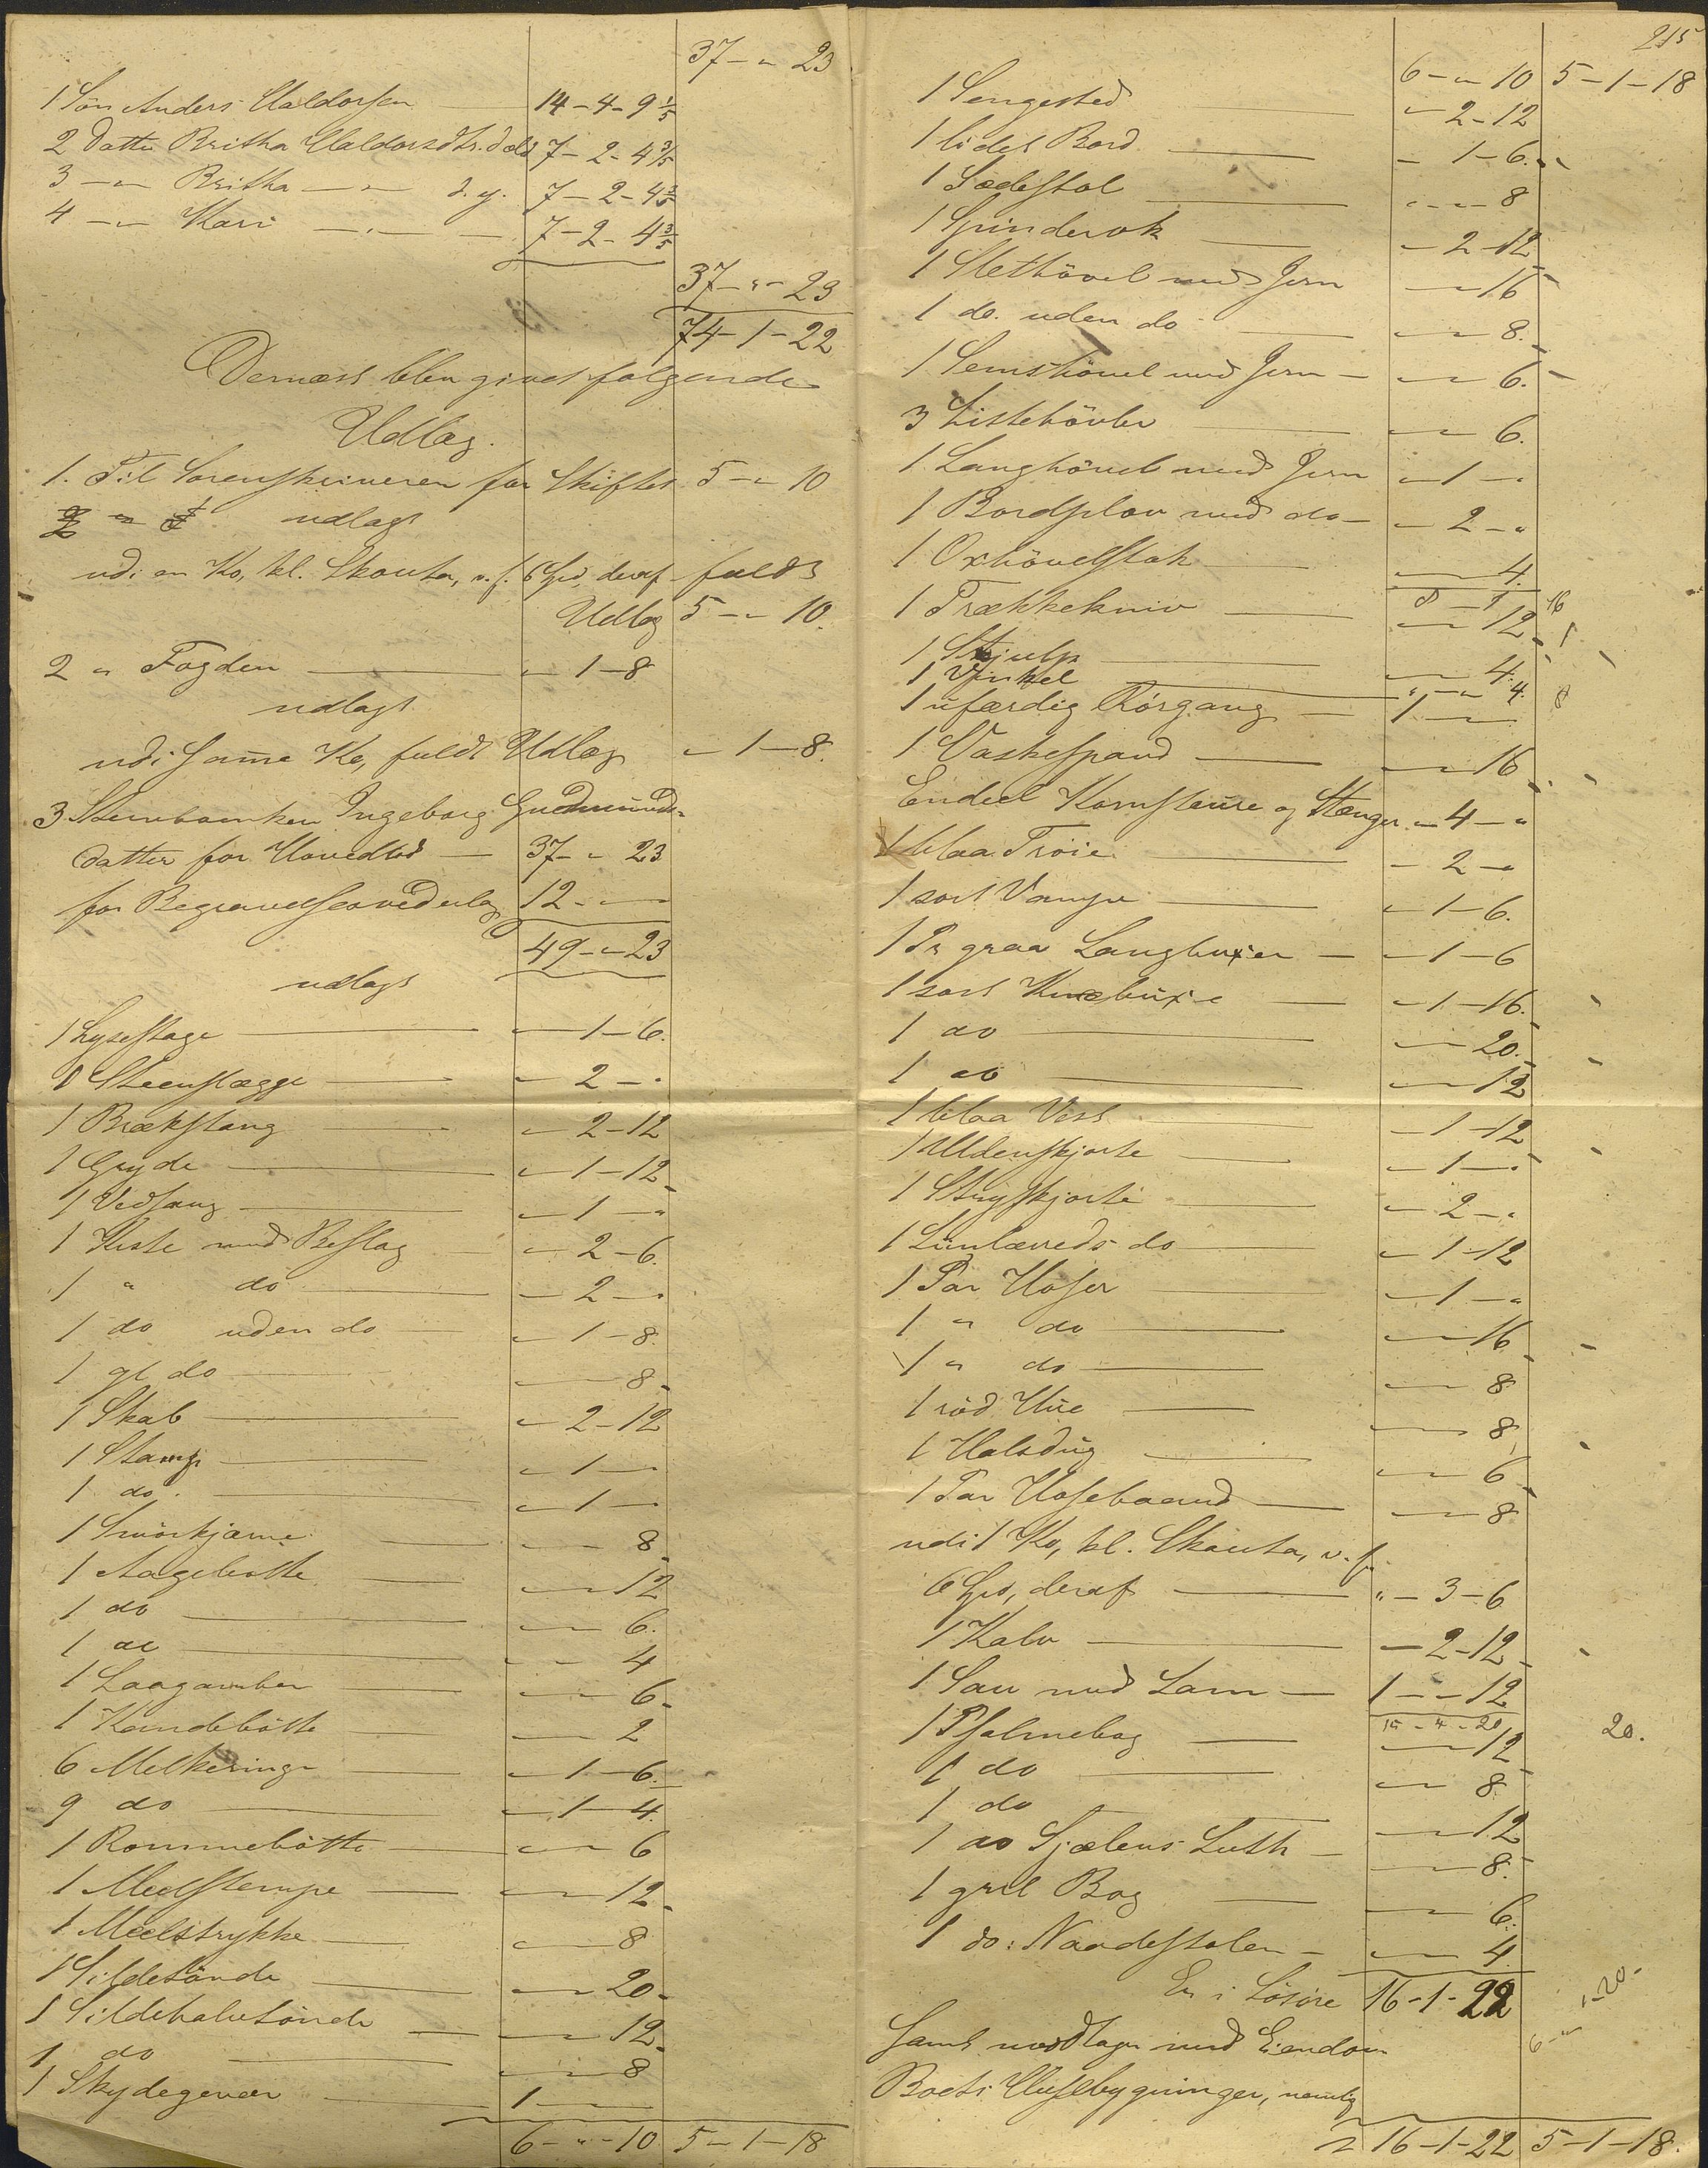 37 - " - 23
1 Søn Anders Haldorsen 14 - 4 - 9 1/5
2 Datter Britha Haldorsdtr. d. æld 7 - 2 - 4 3/5
3 - " - Britha - " - d. y. 7 - 2 - 4 3/5
4 - " - Kari - " - 7 - 2 - 4 3/5
37 - " - 23
74 - 1 - 22
Dernæst blev givet følgende
Udlæg.
1. Til Sorenskriveren for Skiftet 5 - " - 10
udlagt
udi en Ko, kl. Skouta, v. f. 6 Spd, deraf fuldt
Udlæg 5 - " - 10.
2 " Fogden " - 1 - 8
udlagt
udi samme Ko, fuldt Udlæg " - 1 - 8.
3 Stervboenken Ingeborg Gudmunds-
datter for Hovedlod 37 - " - 23
for Begravelsesvederlag 12 - " -
49 - " - 23
udlagt
1 Lysestage " - 1 - 6.
1 Steenslægge " - 2 - "
1 Brækstang " - 2 - 12
1 Gryde " - 1 - 12
1 Vedsaug " - 1 - "
1 Kiste med Beslag " - 2 - 6.
1 " do " - 2 - "
1 do uden do " - 1 - 8.
1 gl do " - " - 8
1 Skab " - 2 - 12
1 Stamp " - 1 - "
1 do. " - 1 - "
1 Smörkjærne " - " - 8
1 Aagebøtte " - " - 12
1 do " - " - 6.
1 do " - " - 4
1 Laagamber " - " - 6
1 Kandebøtte " - " - 2
6 Melkeringe " - 1 - 6.
9 do " - 1 - 4
1 Rommebøtte " - " - 6
1 Meelstempe " - " - 12
1 Meelstrykke " - " - 8
1 Sildetönde " - " - 20
1 Sildehalvtönde " - " - 12
1 do " - " - 8
1 Skydegevær 1 - " -
6 - " - 10 5 - 1 - 18
215
6 - " - 10 5 - 1 - 18
1 Sengested " - 2 - 12
1 lidet Bord " - 1 - 6.
1 Sædestol " - " - 8
1 Spinderok " - 2 - 12
1 Slethövel med Jern " - " - 16
1 do. uden do " - " - 8.
1 Semshövel med Jern " - " - 6.
3 Listehövler " - " - 6.
1 Langhövel med Jern " - 1 - "
1 Bordplov med do " - 2 - "
1 Oxhövelstok " - " - 4.
1 Trækkekniv " - " - 12
1 Skjulp " - " - 4.
1 Vinkel " - " - 4.
1 ufærdig Rörgang 1 - " -
1 Vaskespand " - " - 16
Endeel Kornstaure og Stænger " - 4 - "
1 blaa Trøie " - 2 - "
1 sort Vampe " - 1 - 6.
1 Pr graa Langbuxer " - 1 - 6
1 sort Knæbuxe " - 1 - 16.
1 do " - " - 20.
1 do " - " - 12
1 blaa Vest " - 1 - 12
1 Uldenskjorte " - 1 - "
1 Stryskjorte " - 2 - "
1 Linlærreds do " - 1 - 12
1 Par Hoser " - 1 - "
1 " do " - " - 16
1 " do " - " - 8
1 röd Hue " - " - 8
1 Halsdug " - " - 6
1 Par Hosebaand " - " - 8
udi 1 Ko, kl. Skouta, v. f.
6 Spd, deraf " - 3 - 6
1 Kalv " - 2 - 12
1 Sau med Lam 1 - " - 12
15 - 4 - 20 20.
1 Psalmebog " - " - 12
1 do " - " - 8
1 do " - " - 12
1 do Sjælens Luth " - " - 8.
1 gml Bog " - " - 6.
1 do: Naadestolen " - " - 4
Er i Lösöre 16 - 1 - 22
samt modtager med Eiendom
Boets Huusebygninger, nemlig
16 - 1 - 22 5 - 1 - 18.